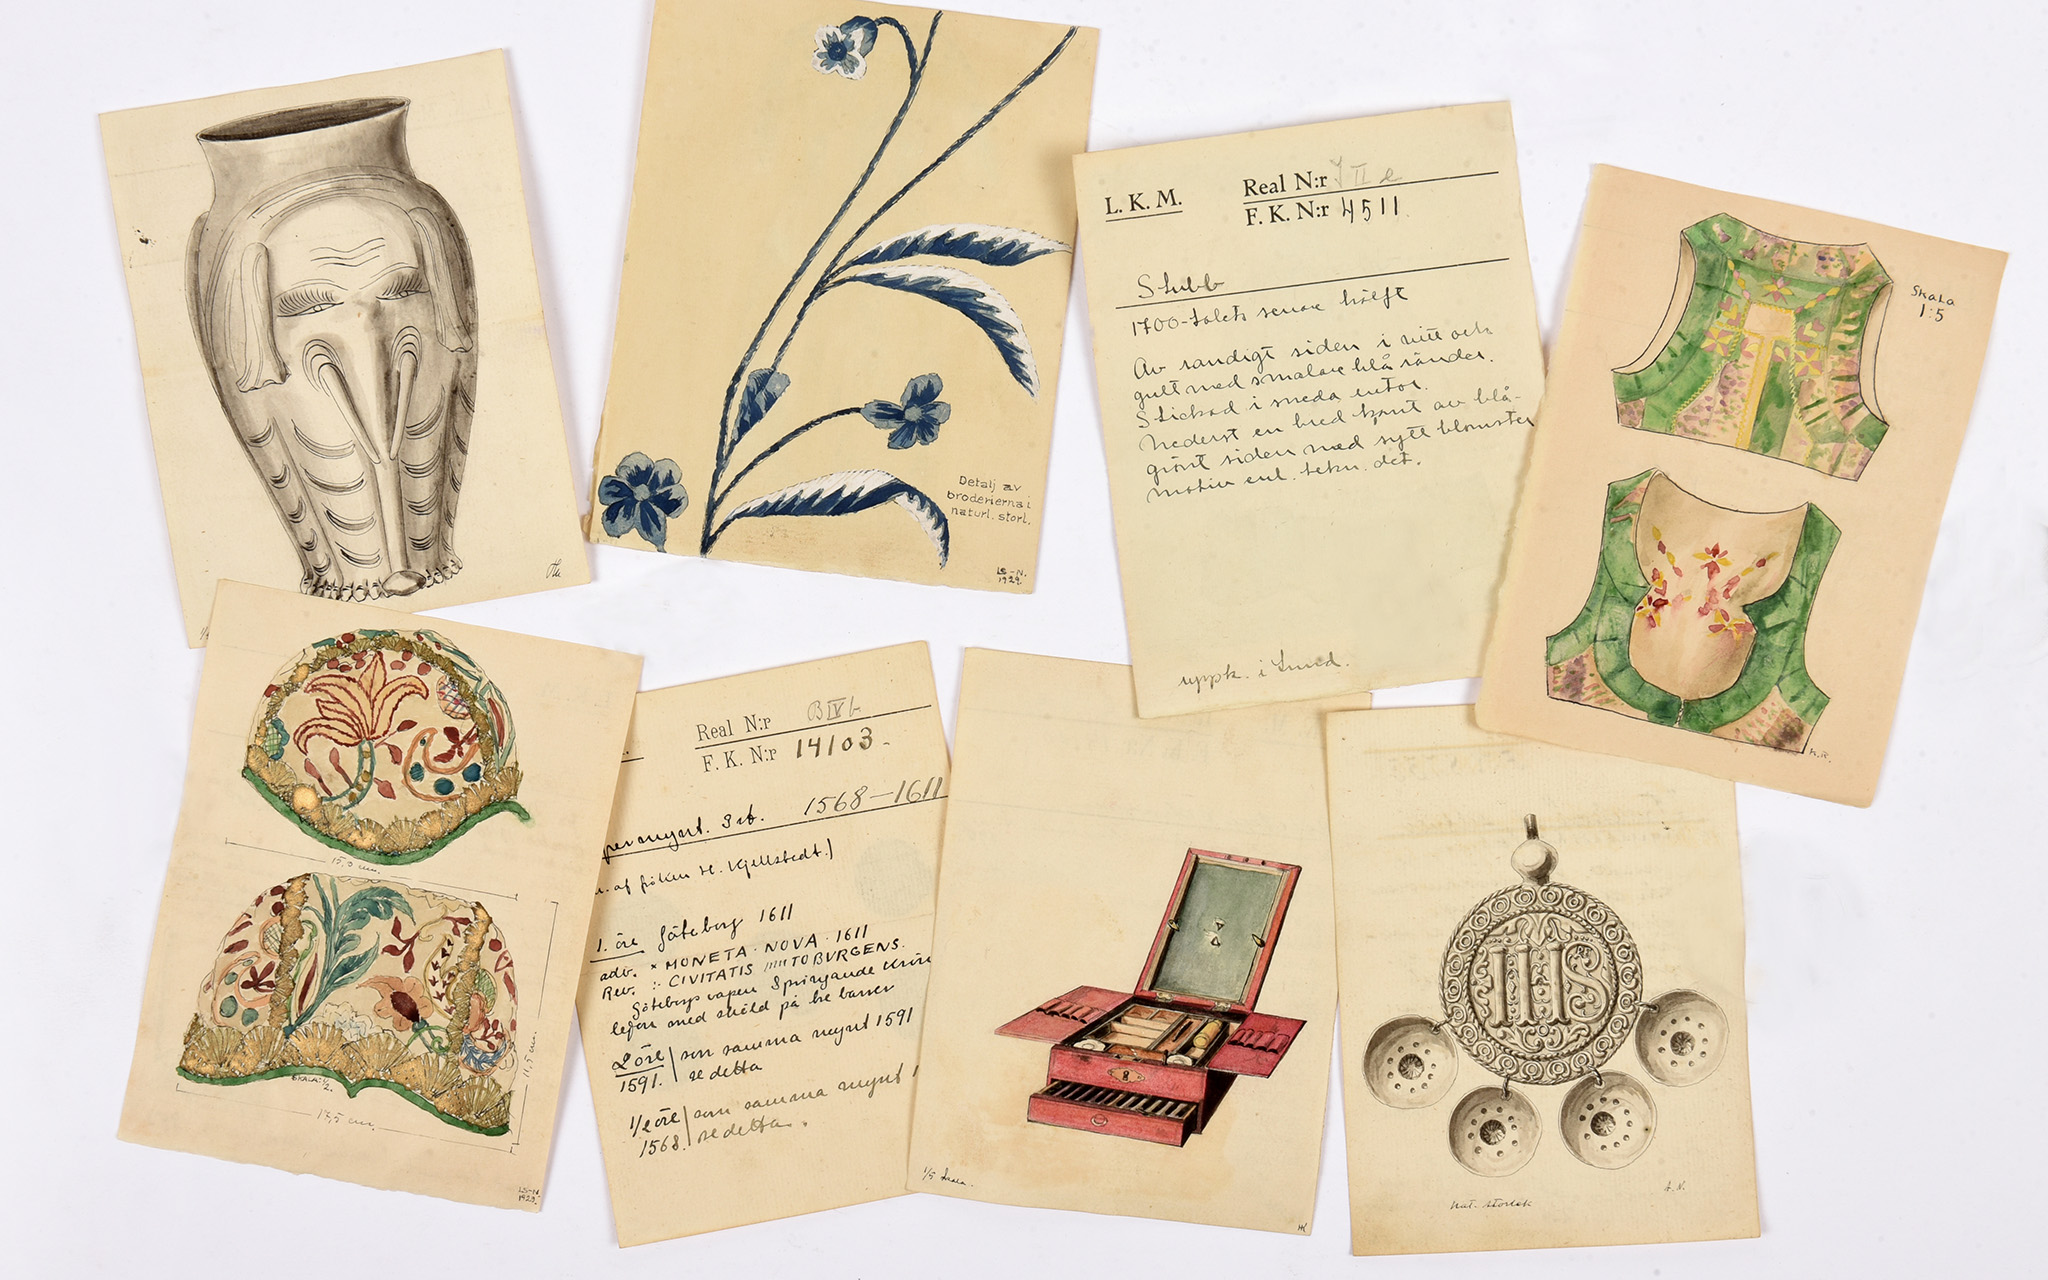 Detalj av
broderierna i
naturl. storl.
LS-N.
1929.
L. K. M.
Real N:r J II e
F. K. N:r 4511
Stubb
1700-talets senare hälft
Av randigt siden i vitt och
gult med smalare blå ränder.
Stickad i sneda rutor.
Nederst en bred kant av blå-
grönt siden med sytt blomster
motiv enl. tekn. det.
uppk. i Lund.
Skala
1:5
K.R.
15,0 cm.
SKALA: 1/2.
11,5 cm.
17,5 cm.
LS-N.
1929.
Real N:r B IV b
F. K. N:r 14103.
permynt. 3 st. 1568-1611
af fröken H. Kjellstedt.)
1. öre Göteborg 1611
adv. * MONETA · NOVA · 1611
Rev. :- CIVITATIS TOBVRGENS.
Göteborgs vapen Springande krön
lejon med sköld på tre barrer
2 öre som samma mynt 1591
1591. se detta
1/2 öre som samma mynt
1568. se detta.
1/5 skala.
HK
IHS
nat. storlek
A. N.